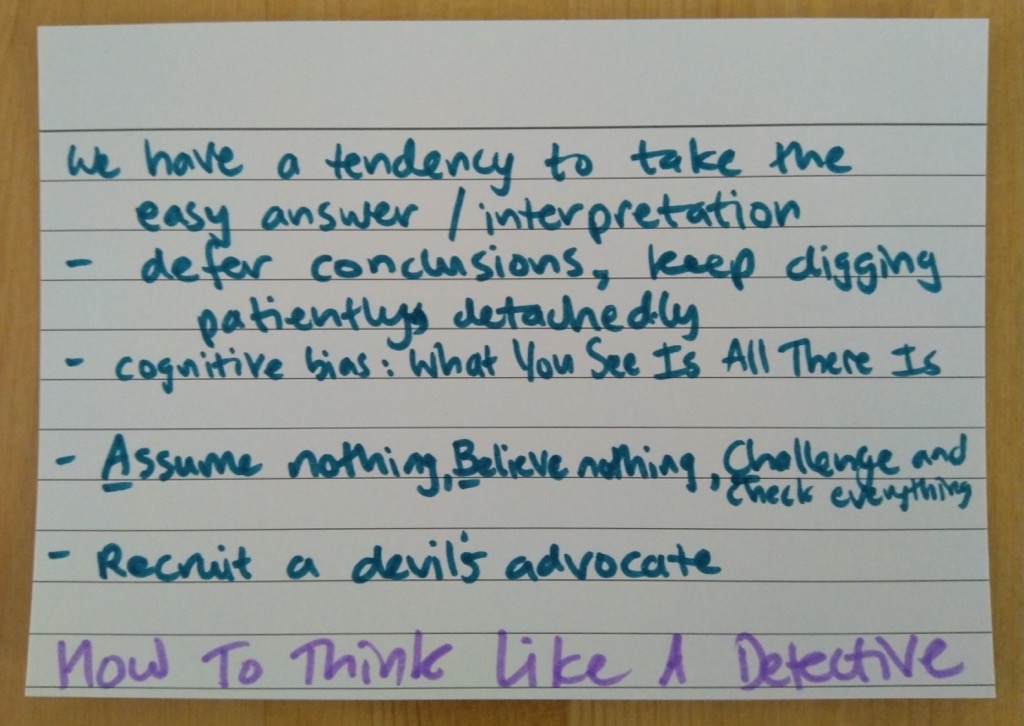 We have a tendency to take the
easy answer / interpretation
- defer conclusions, keep digging
patiently, detachedly
- cognitive bias: What You See Is All There Is
- Assume nothing, Believe nothing, Challenge and
check everything
- Recruit a devil's advocate
How To Think Like A Detective